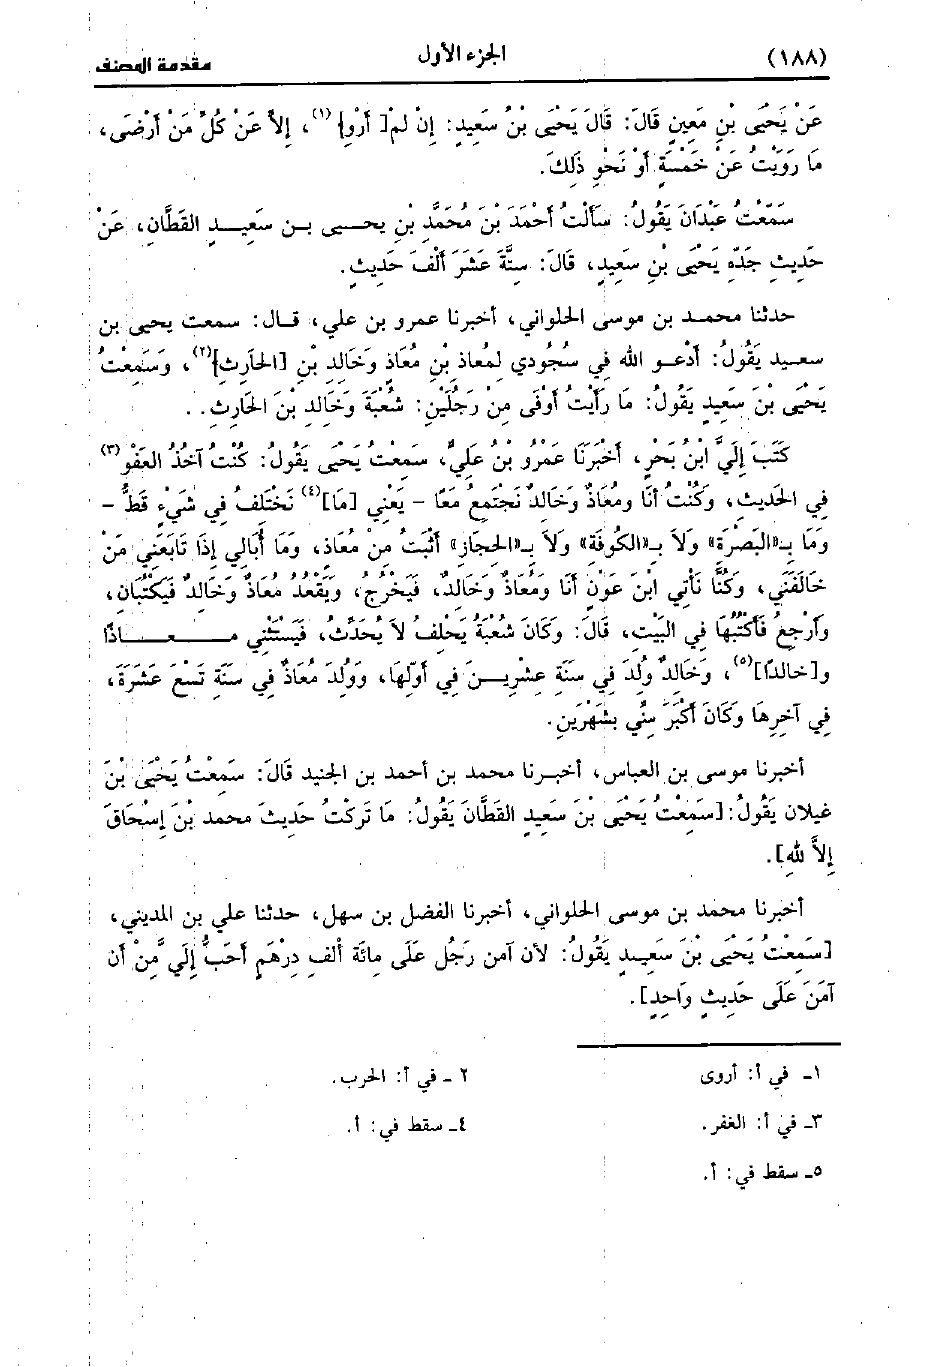 (١٨٨) الجزء الأول مقدمة المصنف
عَنْ يَحْيَى بْنِ مَعِينٍ قَالَ: قَالَ يَحْيَى بْنُ سَعِيدٍ: إِنْ لم[ أَروِ} (١)، إِلاَّ عَنْ كُلِّ مَنْ أَرْضَى،
مَا رَوَيْتُ عَنْ خَمْسَةٍ أَوْ نَحْوِ ذَلِكَ.
سَمِعْتُ عَبْدَانَ يَقُولُ: سَأَلْتُ أَحْمَدَ بْنَ مُحَمَّدِ بْنِ يحيى بن سَعِيدٍ القَطَّانِ، عَنْ
حَدِيثِ جَدِّهِ يَحْيَى بْنِ سَعِيدٍ، قَالَ: سِتَّةَ عَشَرَ أَلْفَ حَدِيثٍ.
حدثنا محمد بن موسى الحلواني، أخبرنا عمرو بن علي، قال: سمعت يحيى بن
سعيد يَقُولُ: أَدْعُو الله فِي سُجُودِي لمُعَاذِ بْنِ مُعَاذٍ وَخَالِدِ بْنِ [الحَارِثِ}(٢)، وَسَمِعْتُ
يَحْيَى بْنَ سَعِيدٍ يَقُولُ: مَا رَأَيْتُ أَوْفَى مِنْ رَجُلَيْنِ: شُعْبَةَ وَخَالِدِ بْنَ الحَارِثِ. .
كَتَبَ إِلَيَّ ابْنُ بَحْرٍ، أَخْبَرَنَا عَمْرُو بْنُ عَلِيٍّ، سَمِعْتُ يَحْيَى يَقُولُ: كُنْتُ آخُذُ العَفْوَ(٣)
فِي الحَدِيثِ، وَكُنْتُ أَنَا ومُعَاذٌ وَخَالِدٌ نَجْتَمِعُ مَعًا - يَعْنِي [مَا](٤) نَخْتَلِفُ فِي شَيْءٍ قَطُّ -
وَمَا بِـ«البَصْرَةِ» وَلاَ بِـ«الكُوفَةِ» وَلاَ بِـ«الحِجَازِ» أَثْبَتُ مِنْ مُعَاذٍ، وَمَا أُبَالِي إِذَا تَابَعَنِي مَنْ
خَالَفَنِي، وَكُنَّا نَأْتِي ابْنَ عَوْنٍ أَنَا وَمُعَاذٌ وَخَالِدٌ، فَيَخْرُجُ، وَيَقْعُدُ مُعَاذٌ وَخَالِدٌ فَيَكْتُبَانِ،
وَأَرْجِعُ فَأَكْتُبُهَا فِي البَيْتِ، قَالَ: وَكَانَ شُعْبَةُ يَحْلِفُ لاَ يُحَدِّثُ، فَيَسْتَثْنِي مـعـاذًا
و[خالدًا](٥)، وَخَالِدٌ وُلِدَ فِي سَنَةِ عِشْرِينَ فِي أَوَّلِهَا، وَوُلِدَ مُعَاذٌ فِي سَنَةِ تِسْعَ عَشَرَةَ،
فِي آخِرِهَا وَكَانَ أَكْبَرَ مِنِّي بِشَهْرَيْنِ.
أخبرنا موسى بن العباس، أخبرنا محمد بن أحمد بن الجنيد قَالَ: سَمِعْتُ يَحْيَى بْنَ
غيلان يَقُولُ: [سَمِعْتُ يَحْيَى بْنَ سَعِيدٍ القَطَّانَ يَقُولُ: مَا تَرَكْتُ حَدِيثَ محمد بْنَ إِسْحَاقَ
إِلاَّ لِلهِ].
أخبرنا محمد بن موسى الحلواني، أخبرنا الفضل بن سهل، حدثنا علي بن المديني،
[سَمِعْتُ يَحْيَى بْنَ سَعِيدٍ يَقُولُ: لأن آمن رَجُل عَلَى مِائَة أَلْفِ دِرْهَمٍ أَحَبُّ إِلَي مِّنْ أن
آمَنَ عَلَى حَدِيثٍ وَاحِدٍ].
١ـ في أ: أروى
٢ - في أ: الحرب.
٣ـ في أ: الغفر.
٤ـ سقط في: أ.
٥ـ سقط في: أ.